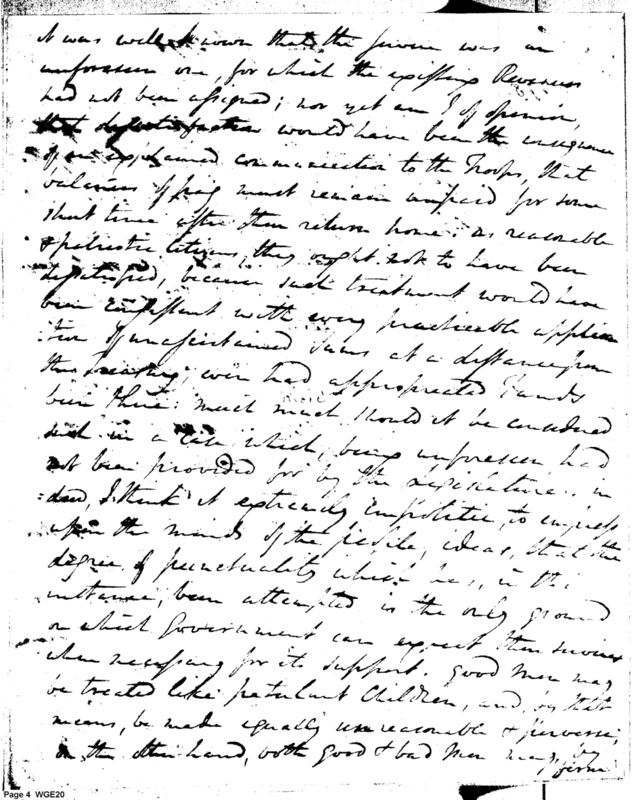 it was well known that the service was an
unforeseen one, for which the existing Revenues
had not been assigned; nor yet am I of opinion,
that dissatisfaction would have been the consequence
of an explained communication to the Troops, that
balances of pay must remain unpaid for some
short time after their return home: as reasonable
& patriotic citizens, they ought not to have been
dissatisfied, because such treatment would have
been consistent with every practicable applica
tion of unascertained sums at a distance from
the treasury; even had appropriated Funds
been there: much more should it be considered
such in a case which, being unforeseen, had
not been provided for by the Legislature: in
:deed, I think it extremely impolitic, to impress
upon the minds of the people, ideas, that the
degree of punctuality which has, in this
instance, been attempted is the only ground
on which Government can expect their services
when necessary for its support. Good Men may
be treated like petulant Children, and, by that
means, be made equally unreasonable & perverse;
on the other hand, both good & bad Men may, by
Page 4 WGE20